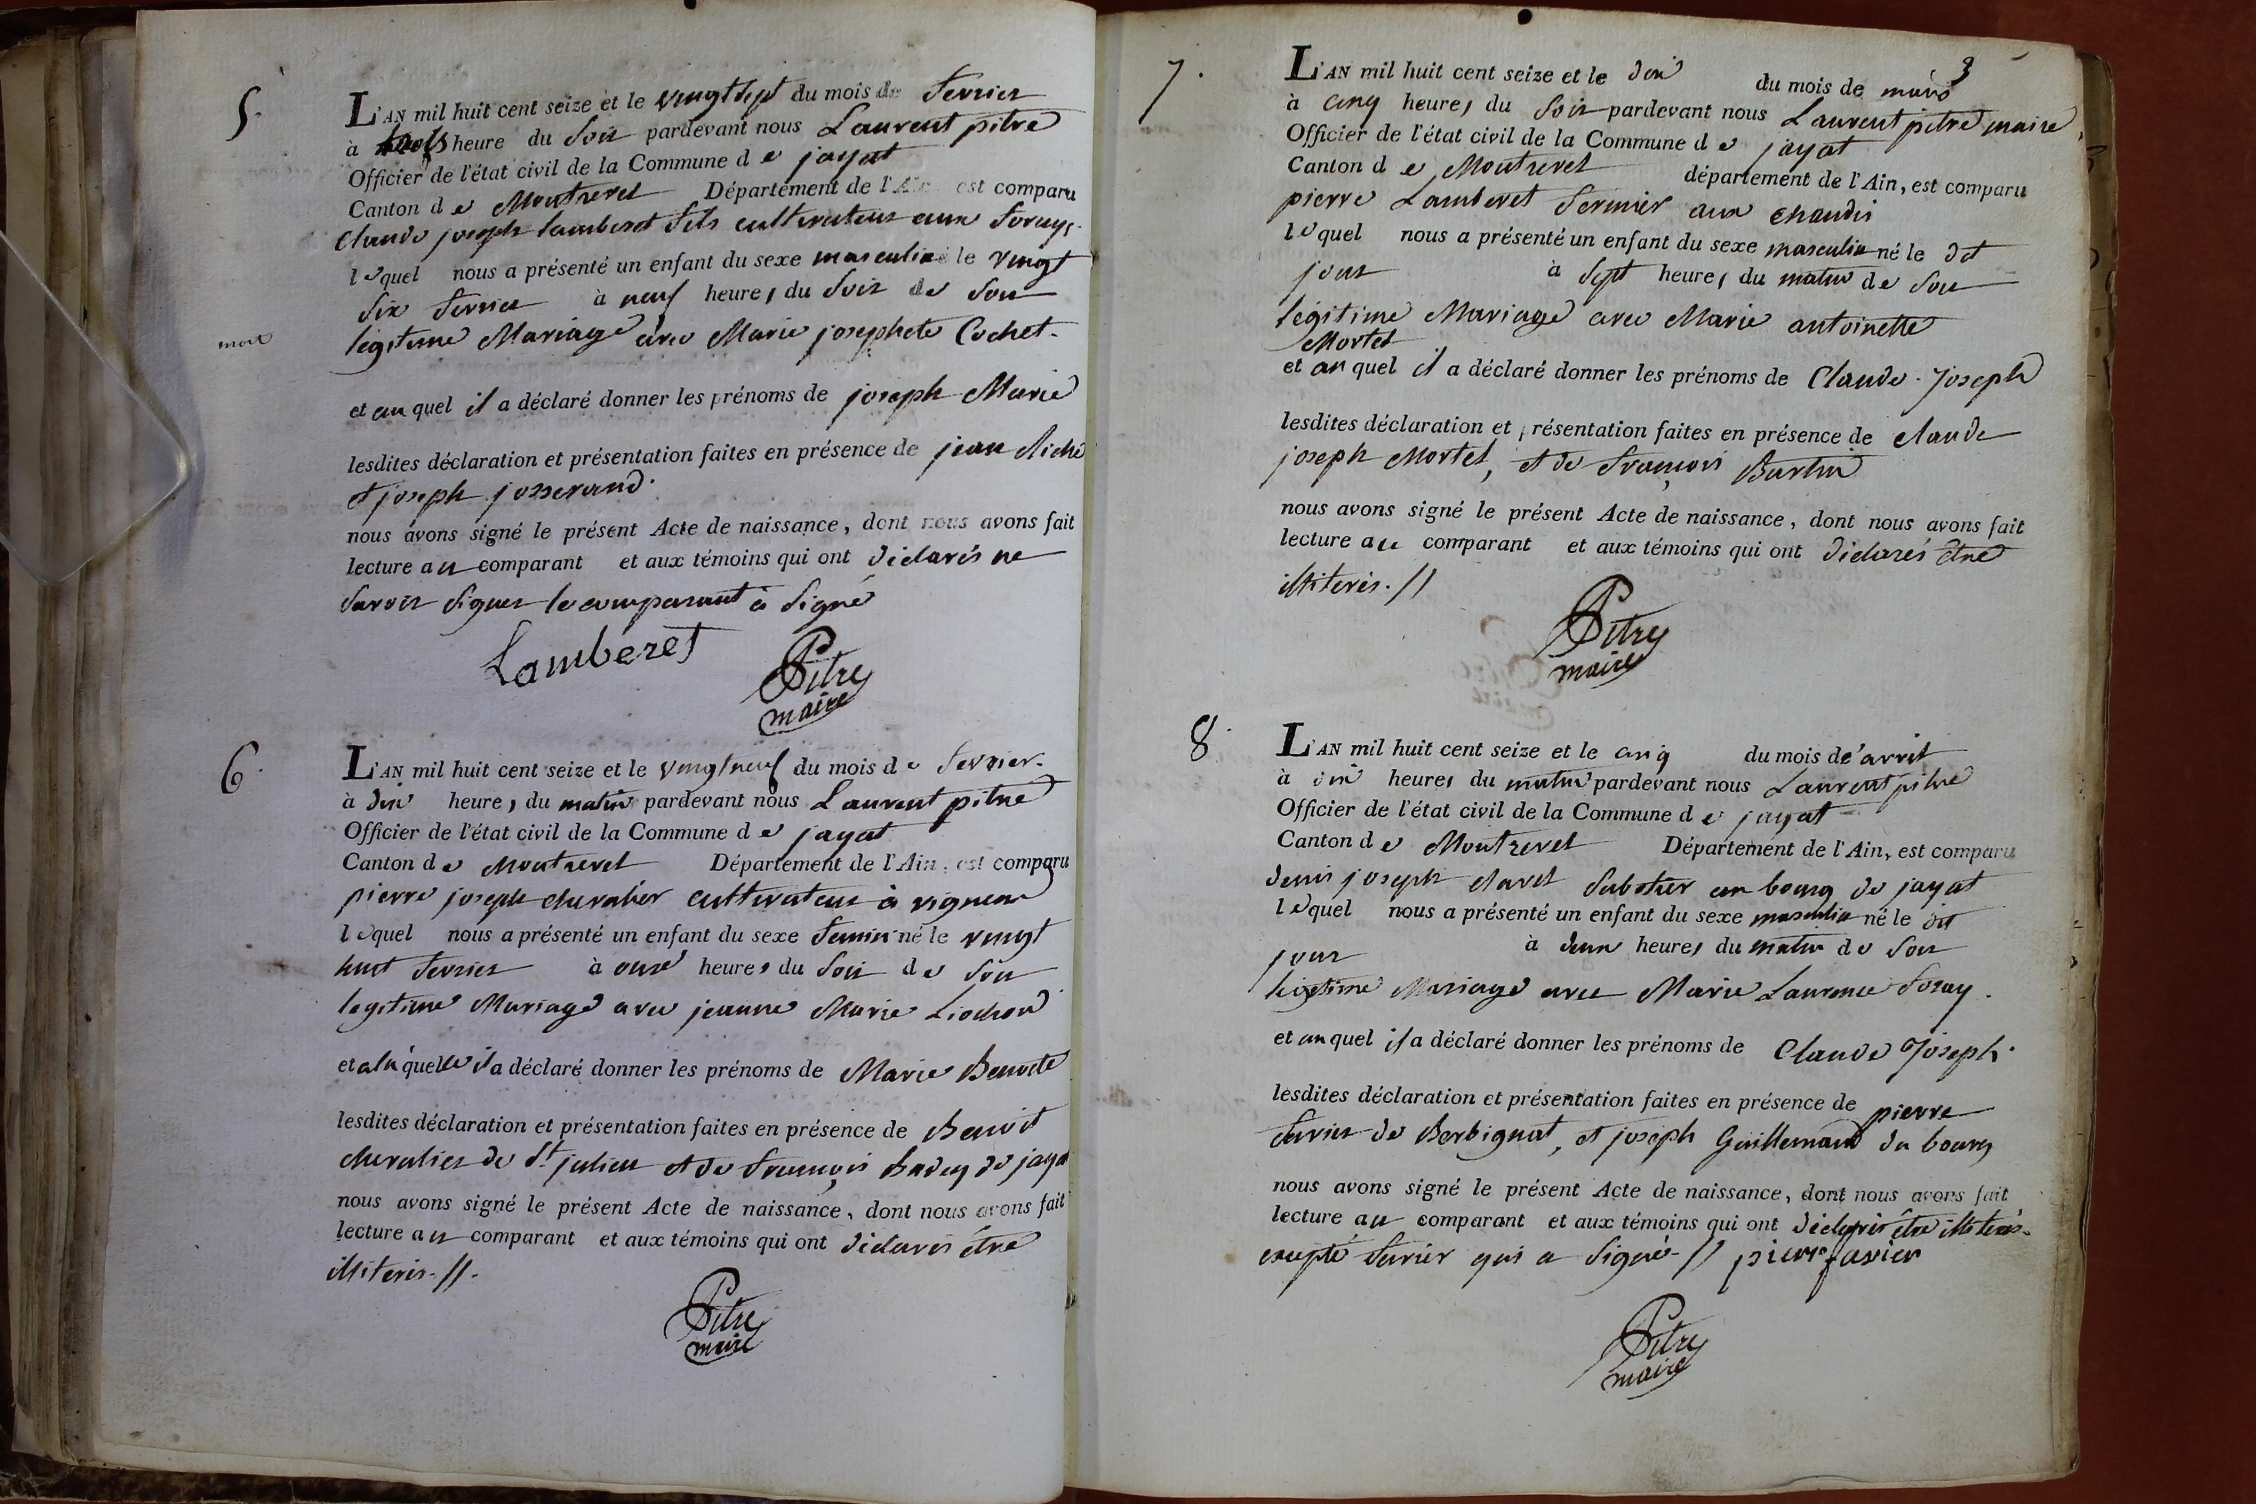 5.
L'AN mil huit cent seize et le vingt sept du mois de fevrier
à trois heure du soir pardevant nous Laurent pitre
Officier de l'état civil de la Commune de jayat
Canton de Montrevel Département de l'Ain est comparu
claude joseph lamberet fils cultivateur aux
lequel nous a présenté un enfant du sexe masculin né le vingt
six fevrier à neuf heures du soir de son
légitime Mariage avec Marie josephete Cochet.
mort
et auquel il a déclaré donner les prénoms de joseph Marie
lesdites déclaration et présentation faites en présence de jean
et joseph josserand.
nous avons signé le présent Acte de naissance, dont nous avons fait
lecture au comparant et aux témoins qui ont déclarés ne
savoir signer le comparant à signé
Lamberet
Pitre
maire
6.
L'AN mil huit cent seize et le vingt neuf du mois de fevrier.
à dix heures du matin pardevant nous Laurent pitre
Officier de l'état civil de la Commune de jayat
Canton de Montrevel Département de l'Ain, est comparu
pierre joseph chevalier cultivateur à
lequel nous a présenté un enfant du sexe feminin né le vingt
huit fevrier à onze heures du soir de son
legitime Mariage avec jeanne Marie Liochon
et a laquelle il a déclaré donner les prénoms de Marie Benoite
lesdites déclaration et présentation faites en présence de Benoit
chevalier de St julien et de françois de jayat
nous avons signé le présent Acte de naissance, dont nous avons fait
lecture au comparant et aux témoins qui ont déclarés être
illiterés. //.
Pitre
maire
3
7.
L'AN mil huit cent seize et le dix du mois de mars
à cinq heures du soir pardevant nous Laurent pitre maire
Officier de l'état civil de la Commune de jayat
Canton de Montrevel département de l'Ain, est comparu
pierre Lamberet fermier aux chaudis
lequel nous a présenté un enfant du sexe masculin né le dit
jour à sept heures du matin de son
légitime Mariage avec Marie antoinette
Mortel
et auquel il a déclaré donner les prénoms de Claude. joseph
lesdites déclaration et présentation faites en présence de claude
joseph Mortel, et de françois Burtin
nous avons signé le présent Acte de naissance, dont nous avons fait
lecture au comparant et aux témoins qui ont déclarés être
illiterés. //
Pitre
maire
8.
L'AN mil huit cent seize et le cinq du mois d'avril
à dix heures du matin pardevant nous Laurent pitre
Officier de l'état civil de la Commune de jayat
Canton de Montrevel Département de l'Ain, est comparu
denis joseph claret sabotier au bourg de jayat
lequel nous a présenté un enfant du sexe masculin né le dit
jour à deux heures du matin de son
légitime Mariage avec Marie Laurence foray.
et auquel il a déclaré donner les prénoms de Claude Joseph.
lesdites déclaration et présentation faites en présence de pierre
favier de Berbignat, et joseph Guillemand du bourg
nous avons signé le présent Acte de naissance, dont nous avons fait
lecture au comparant et aux témoins qui ont déclarés être illiterés.
excepté favier qui a signé. // pierre favier
Pitre
maire